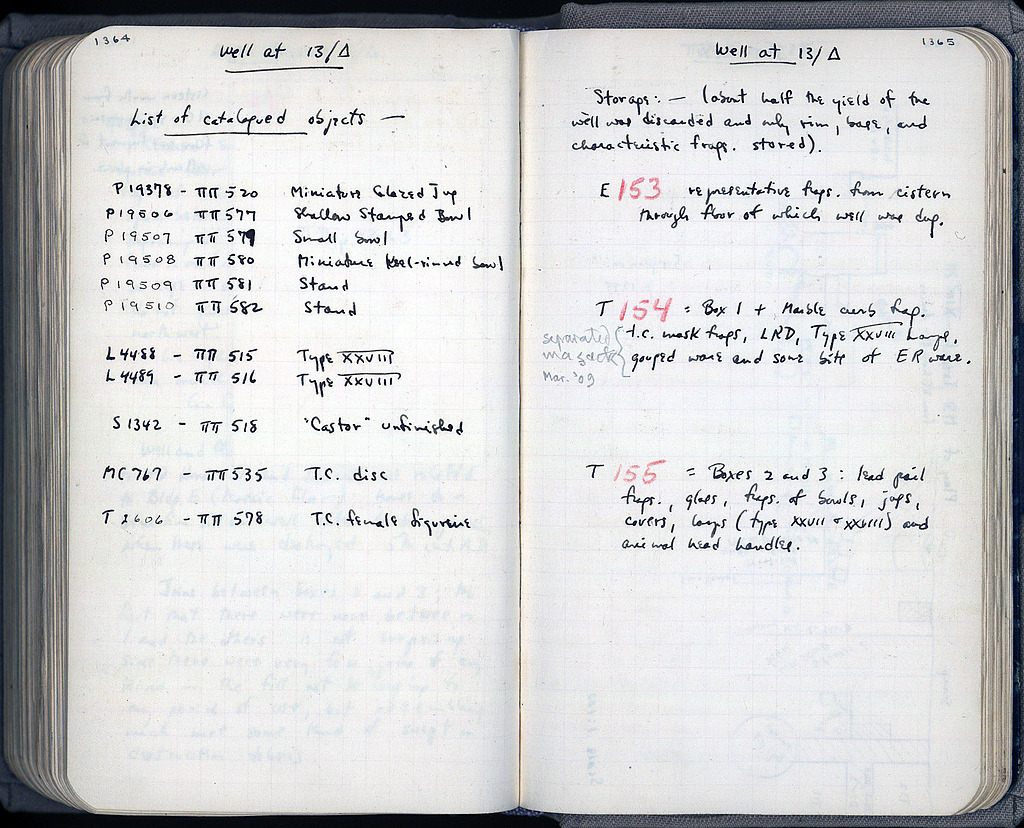 1364
Well at 13/Δ
List of catalogued objects —
P 19378 - ΠΠ 520 Miniature Glazed Jug
P 19506 - ΠΠ 577 Shallow Stamped Bowl
P 19507 - ΠΠ 579 Small bowl
P 19508 - ΠΠ 580 Miniature keel-rimmed bowl
P 19509 - ΠΠ 581 Stand
P 19510 - ΠΠ 582 Stand
L 4488 - ΠΠ 515 Type XXVIII
L 4489 - ΠΠ 516 Type XXVIII
S 1342 - ΠΠ 518 "Castor" unfinished
MC 767 - ΠΠ 535 T.C. disc
T 2606 - ΠΠ 578 T.C. female figurine
1365
Well at 13/Δ
Storage: — (about half the yield of the
well was discarded and only rim, base, and
characteristic frags. stored).
E 153 representative frags. from cistern
through floor of which well was dug.
T 154 = Box 1 + Marble curb frag.
T.C. mask frags, LRD, Type XXVIII Lamps,
gouged ware and some bits of ER ware.
separated
Mar. '09
T 155 = Boxes 2 and 3 : lead pail
frags., glass, frags. of bowls, jugs,
covers, lamps (type XXVII + XXVIII) and
animal head handles.